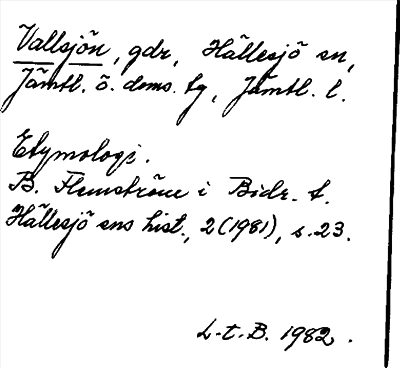 Vallsjön, gdr, Hällesjö sn,
Jämtl. ö. doms. tg, Jämtl. l.
Etymologi.
B. Flemström i Bidr. t.
Hällesjö sns hist., 2 (1981), s. 23.
L-t-B. 1982.